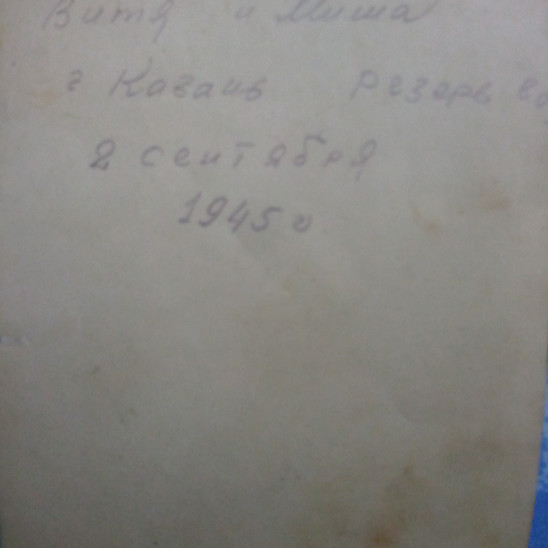 Витя и Миша
г Казань Резерв
2 сентября
1945 г